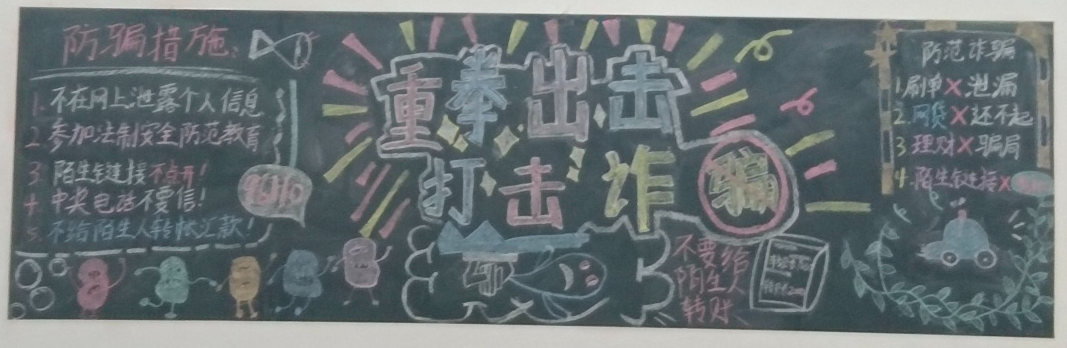 防骗措施:
1. 不在网上泄露个人信息
2. 参加法制安全防范教育
3. 陌生链接不点开!
4. 中奖电话不要信!
5. 不给陌生人转账汇款!
重拳出击
打击诈骗
不要给
陌生人
转账
防范诈骗
1.刷单X泄漏
2.网贷X还不起
3 理财X骗局
4.陌生链接X